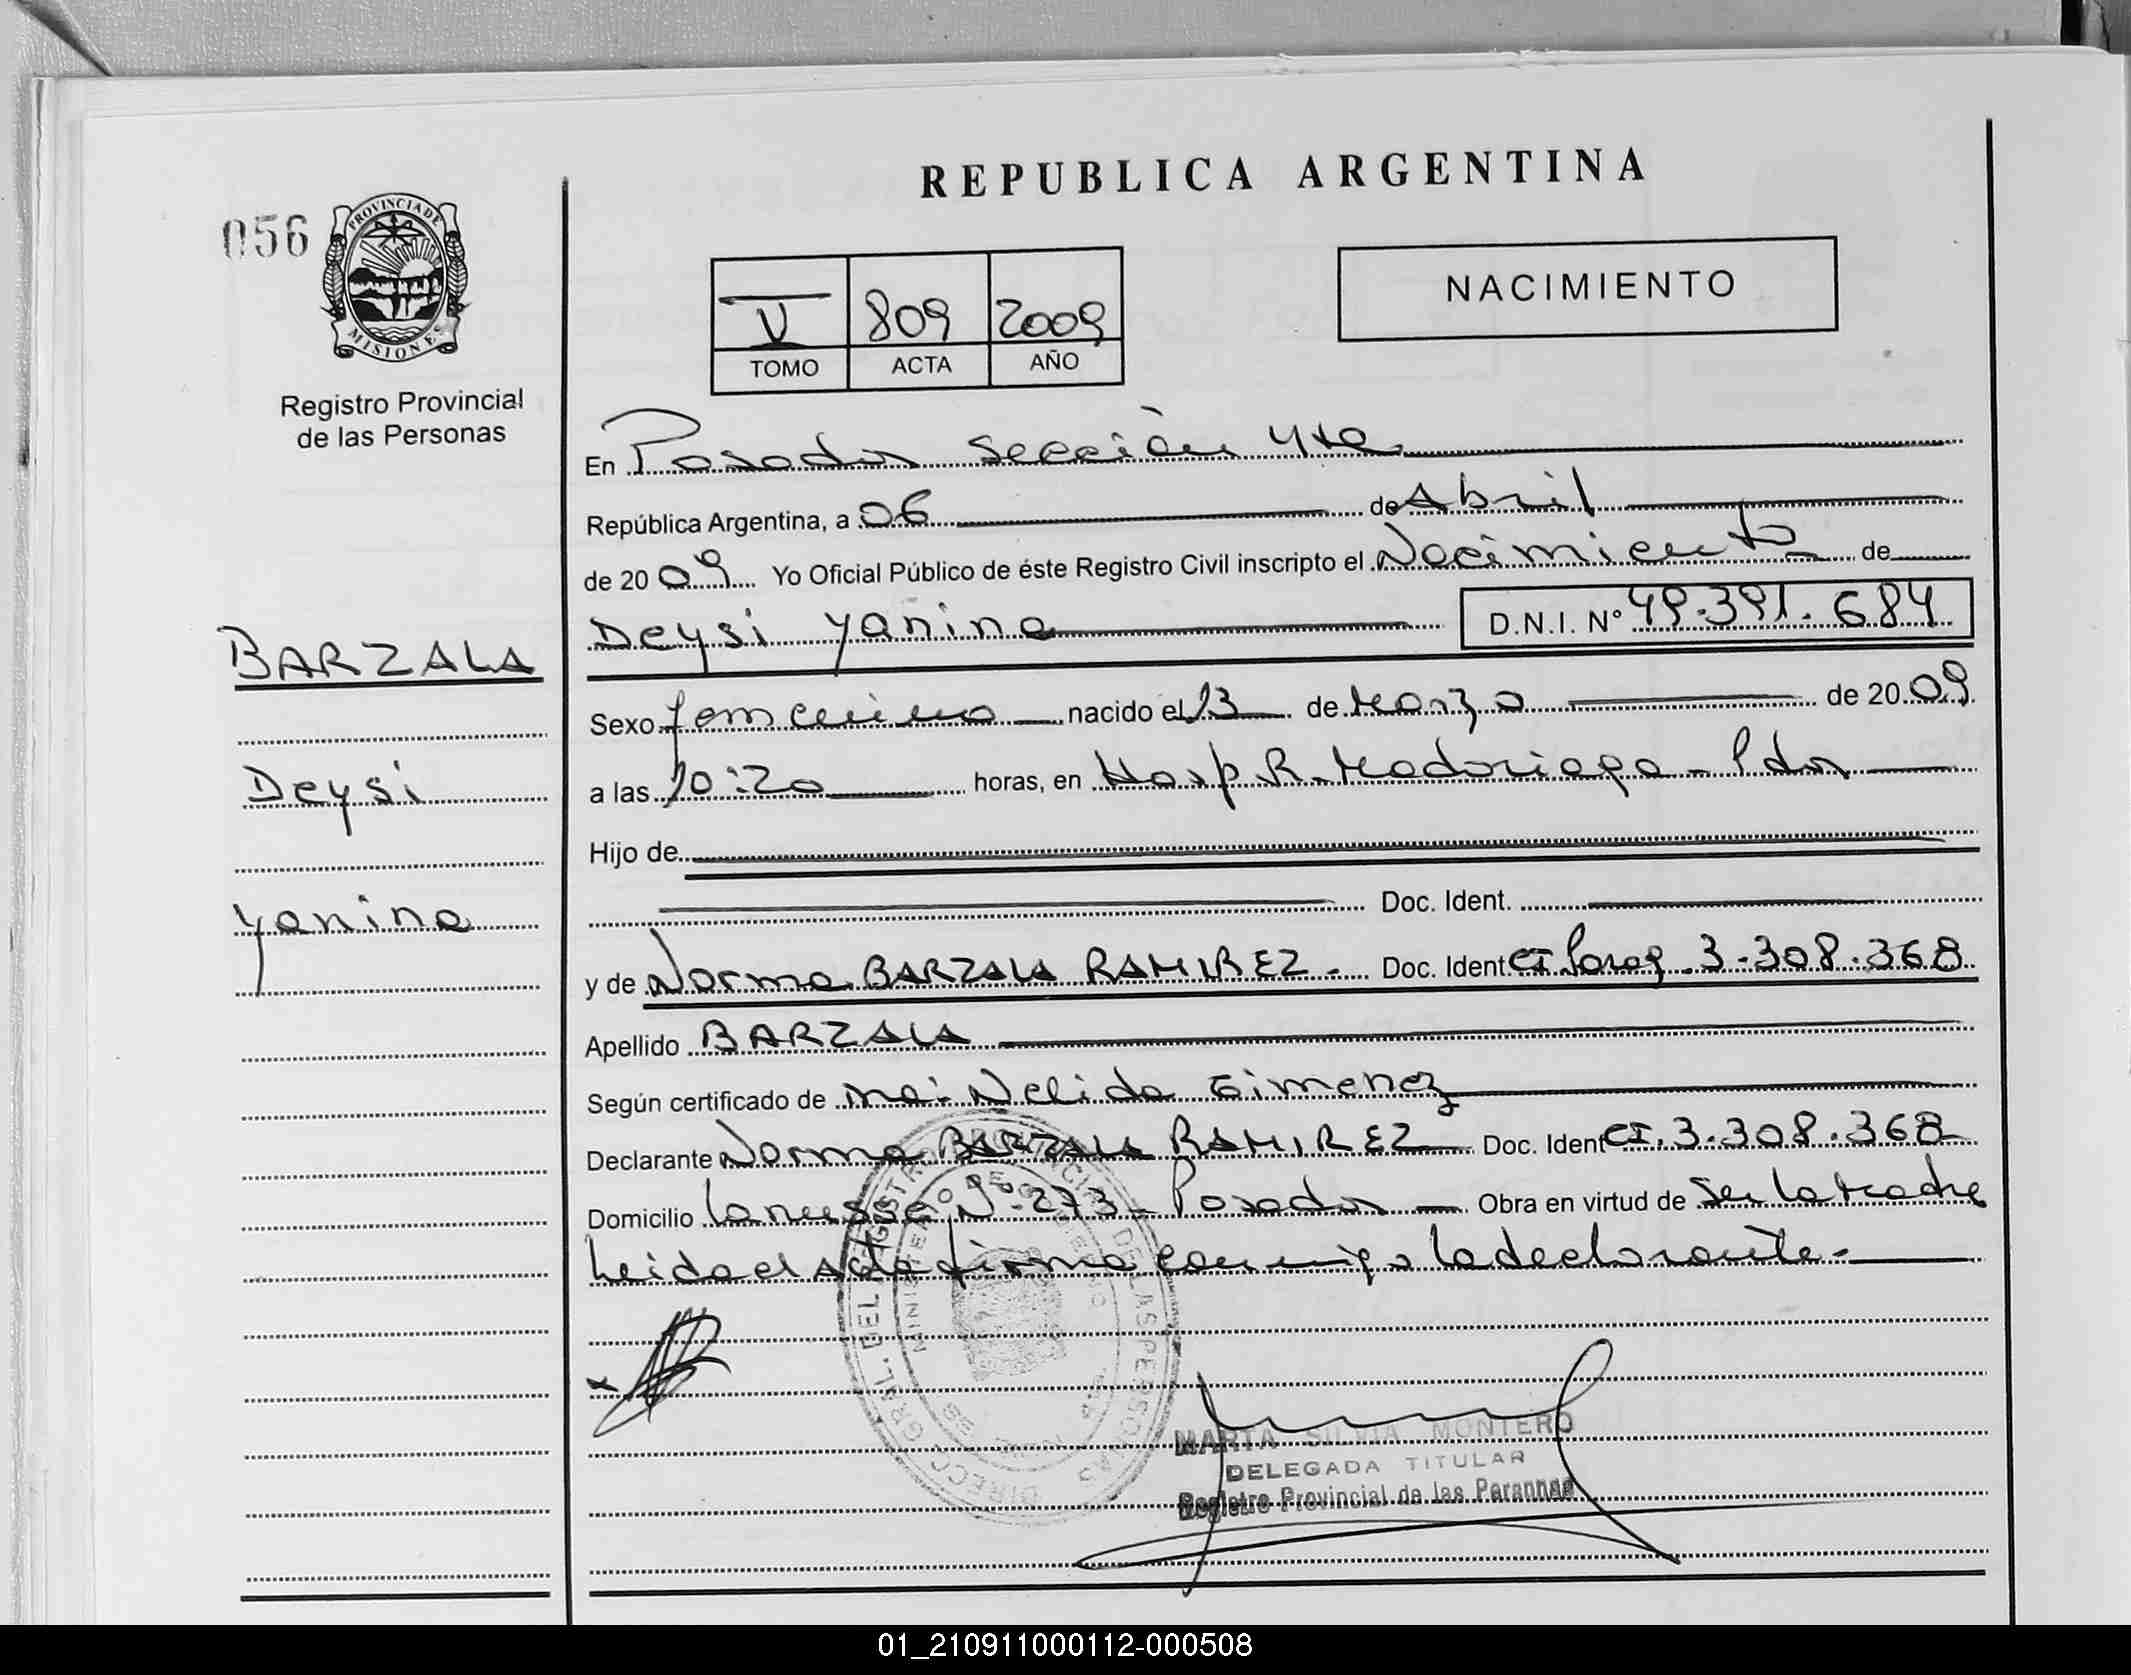 REPUBLICA ARGENTINA
056
PROVINCIA DE
MISIONES
Registro Provincial
de las Personas
V 809 2009
TOMO ACTA AÑO
NACIMIENTO
En Posadas sección 4ta
República Argentina, a 06 de Abril
de 2009 Yo Oficial Público de éste Registro Civil inscripto el Nacimiento de
Deysi Yanina D.N.I. Nº 49.391.684
BARZALA
Deysi
Yanina
Sexo femenino nacido el 13 de Marzo de 2009
a las 10:20 horas, en Hosp. R. Madariaga - Pdas
Hijo de
Doc. Ident.
y de Norma BARZALA RAMIREZ. Doc. Ident CI Parag. 3.308.368
Apellido BARZALA
Según certificado de Nelida Gimenez
Declarante Norma BARZALA RAMIREZ Doc. Ident CI. 3.308.368
Domicilio Lanusse Nº 273 - Posadas Obra en virtud de ser la Madre
Leida el Acta firma conmigo la declarante.-
DIRECC. GRAL. DEL REGISTRO PROVINCIAL DE LAS PERSONAS
MINISTERIO DE GOBIERNO
MARTA SILVIA MONTERO
DELEGADA TITULAR
Registro Provincial de las Personas
01_210911000112-000508